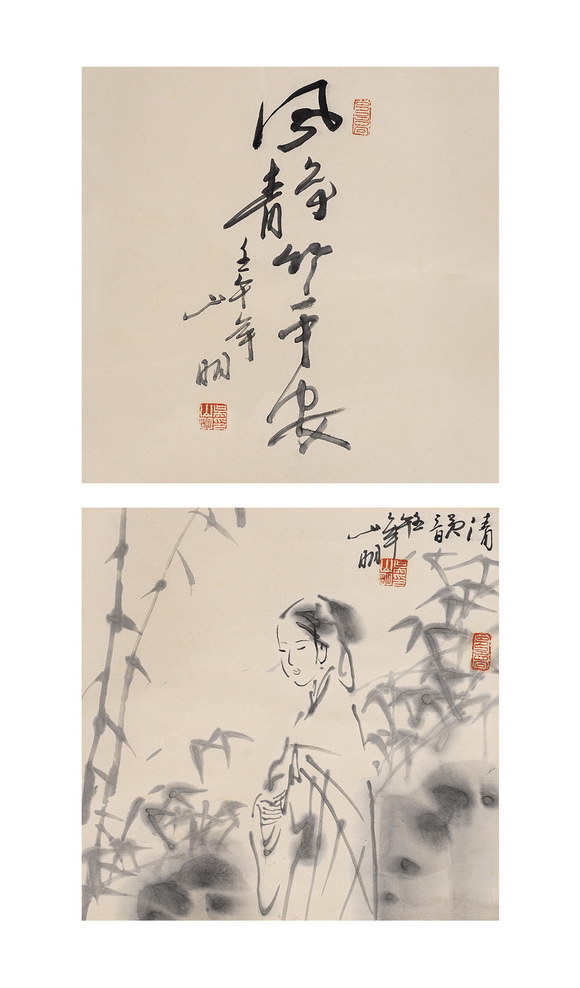 风静竹平安
壬午年
山明
清韻
壬午年
山明